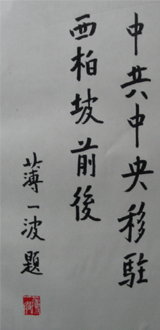 中共中央移駐
西柏坡前後
薄一波題